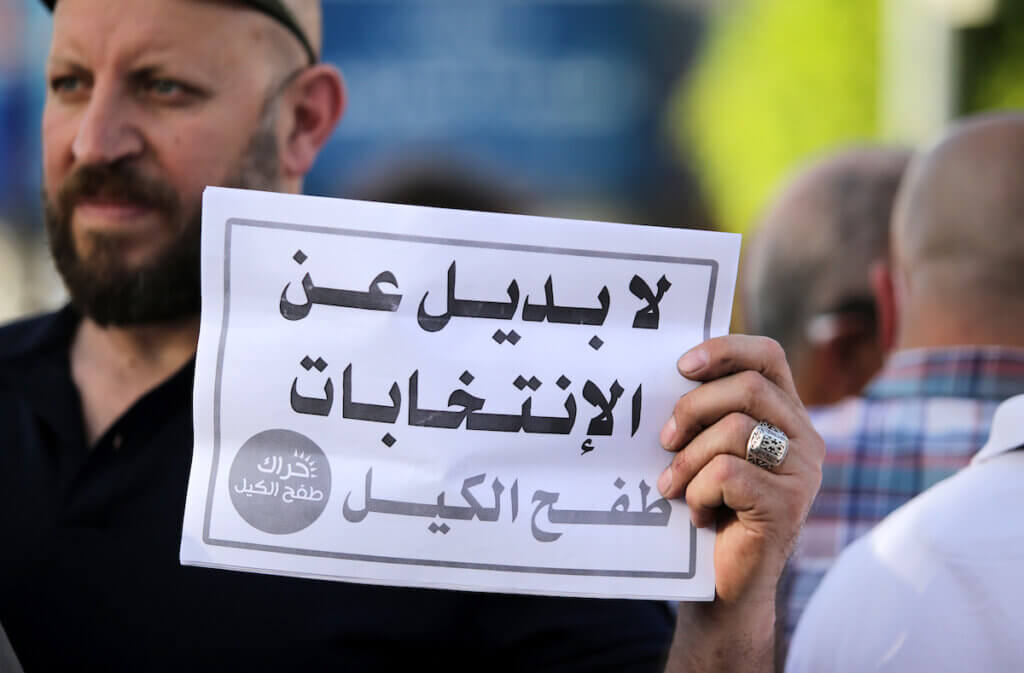 لا بديل عن
الإنتخابات
طفح الكيل
حراك
طفح الكيل